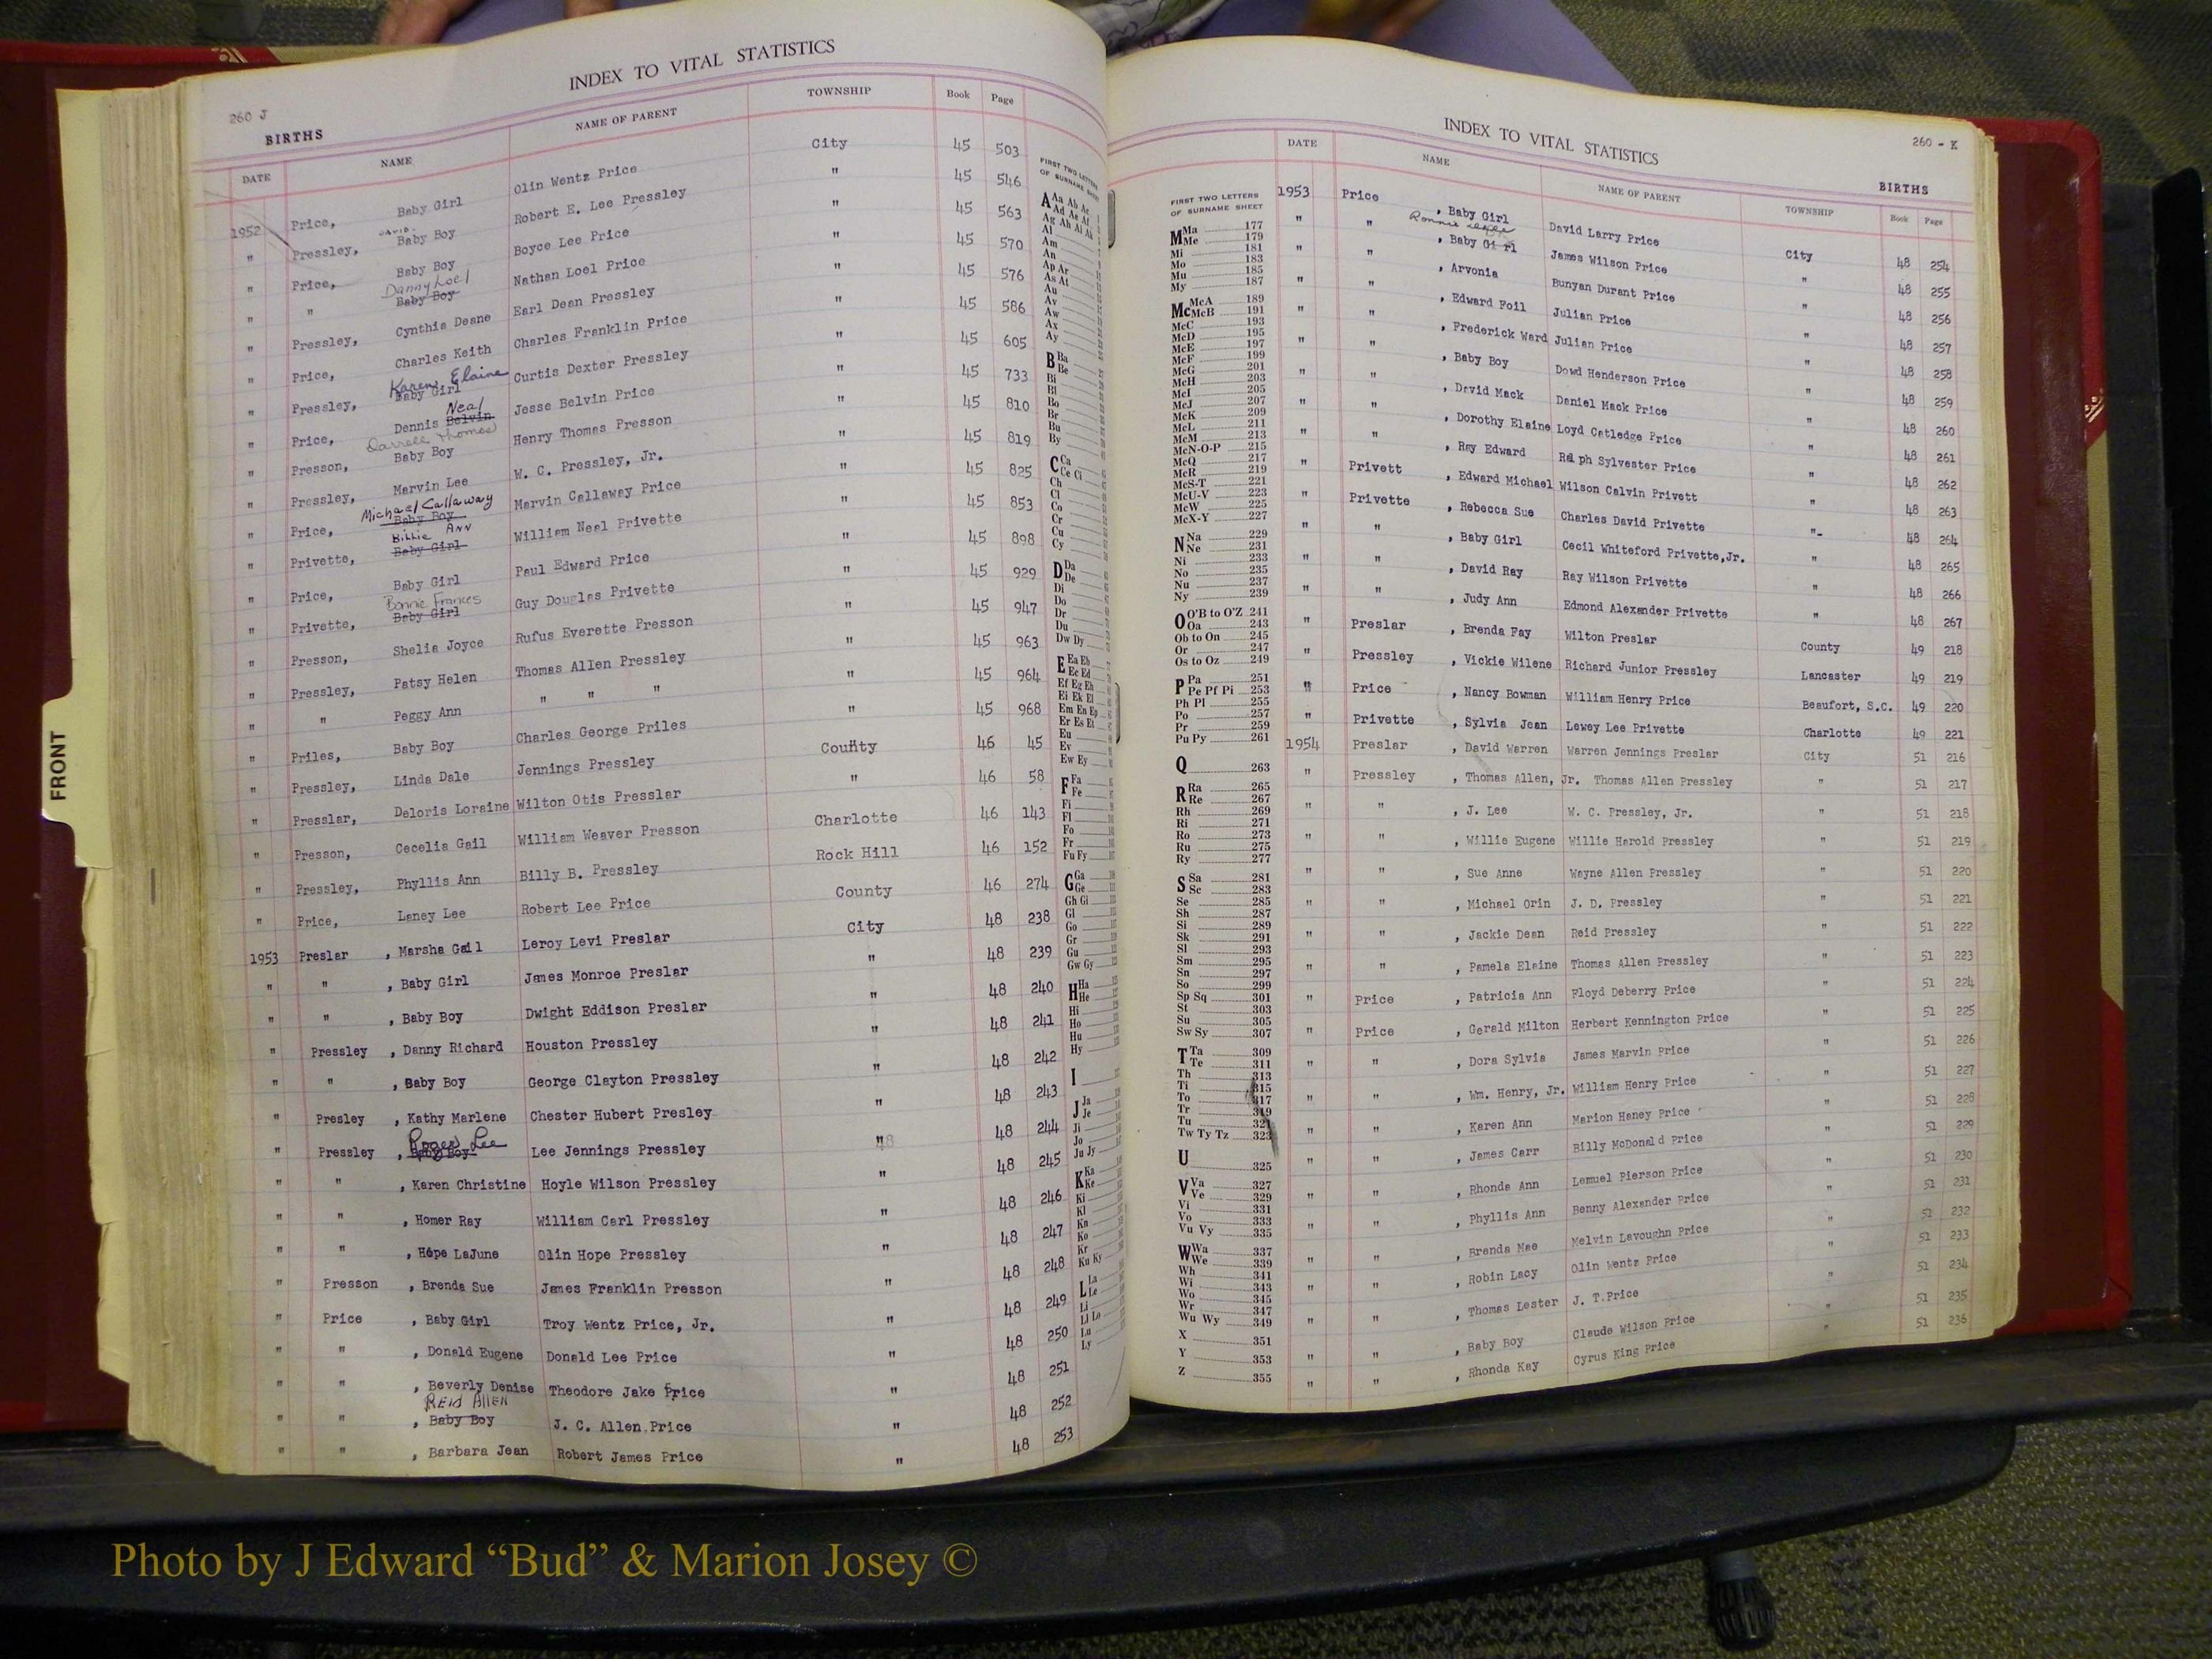 260 J
INDEX TO VITAL STATISTICS
BIRTHS
DATE NAME NAME OF PARENT TOWNSHIP Book Page
1952 Price, Baby Girl Olin Wentz Price City 45 503
" Pressley, DAVID Baby Boy Robert E. Lee Pressley " 45 546
" Price, Baby Boy Boyce Lee Price " 45 563
" " Danny Loel Baby Boy Nathan Loel Price " 45 570
" Pressley, Cynthia Deane Earl Dean Pressley " 45 576
" Price, Charles Keith Charles Franklin Price " 45 586
" Pressley, Karen Elaine Baby Girl Curtis Dexter Pressley " 45 605
" Price, Dennis Neal Belvin Jesse Belvin Price " 45 733
" Presson, Darrell Thomas Baby Boy Henry Thomas Presson " 45 810
" Pressley, Marvin Lee W. C. Pressley, Jr. " 45 819
" Price, Michael Callaway Baby Boy Marvin Callaway Price " 45 825
" Privette, Billie Ann Baby Girl William Neal Privette " 45 853
" Price, Baby Girl Paul Edward Price " 45 898
" Privette, Bonnie Frances Baby Girl Guy Douglas Privette " 45 929
" Presson, Shelia Joyce Rufus Everette Presson " 45 947
" Pressley, Patsy Helen Thomas Allen Pressley " 45 963
" " Peggy Ann " " " " 45 964
" Priles, Baby Boy Charles George Priles " 45 968
" Pressley, Linda Dale Jennings Pressley County 46 45
" Presslar, Deloris Loraine Wilton Otis Presslar " 46 58
" Presson, Cecelia Gail William Weaver Presson Charlotte 46 143
" Pressley, Phyllis Ann Billy B. Pressley Rock Hill 46 152
" Price, Laney Lee Robert Lee Price County 46 274
1953 Preslar , Marsha Gail Leroy Levi Preslar City 48 238
" " , Baby Girl James Monroe Preslar " 48 239
" " , Baby Boy Dwight Eddison Preslar " 48 240
" Pressley , Danny Richard Houston Pressley " 48 241
" " , Baby Boy George Clayton Pressley " 48 242
" Presley , Kathy Marlene Chester Hubert Presley " 48 243
" Pressley , Roger Lee Baby Boy Lee Jennings Pressley " 48 244
" " , Karen Christine Hoyle Wilson Pressley " 48 245
" " , Homer Ray William Carl Pressley " 48 246
" " , Hope LaJune Olin Hope Pressley " 48 247
" Presson , Brenda Sue James Franklin Presson " 48 248
" Price , Baby Girl Troy Wentz Price, Jr. " 48 249
" " , Donald Eugene Donald Lee Price " 48 250
" " , Beverly Denise Theodore Jake Price " 48 251
" " , REid AllEN Baby Boy J. C. Allen Price " 48 252
" " , Barbara Jean Robert James Price " 48 253
FIRST TWO LETTERS
OF SURNAME SHEET
A Aa Ab Ac
Ad Ae Af
Ag Ah Ai Ak
Al
Am
An
Ap Ar
As At
Au
Av
Aw
Ax
Ay
B Ba
Be
Bi
Bl
Bo
Br
Bu
By
C Ca
Ce Ci
Ch
Cl
Co
Cr
Cu
Cy
D Da
De
Di
Do
Dr
Du
Dw Dy
E Ea Eb
Ec Ed
Ef Eg Eh
Ei Ek El
Em En Ep
Er Es Et
Eu
Ev
Ew Ey
F Fa
Fe
Fi
Fl
Fo
Fr
Fu Fy
G Ga
Ge
Gh Gi
Gl
Go
Gr
Gu
Gw Gy
H Ha
He
Hi
Ho
Hu
Hy
I
J Ja
Je
Ji
Jo
Ju Jy
K Ka
Ke
Ki
Kl
Kn
Ko
Kr
Ku Ky
L La
Le
Li
Ll Lo
Lu
Ly
FRONT
INDEX TO VITAL STATISTICS
260 - K
BIRTHS
DATE NAME NAME OF PARENT TOWNSHIP Book Page
FIRST TWO LETTERS
OF SURNAME SHEET
M Ma 177
Me 179
Mi 181
Mo 183
Mu 185
My 187
Mc McA 189
McB 191
McC 193
McD 195
McE 197
McF 199
McG 201
McH 203
McI 205
McJ 207
McK 209
McL 211
McM 213
McN-O-P 215
McQ 217
McR 219
McS-T 221
McU-V 223
McW 225
McX-Y 227
N Na 229
Ne 231
Ni 233
No 235
Nu 237
Ny 239
O O'B to O'Z 241
Oa 243
Ob to On 245
Or 247
Os to Oz 249
P Pa 251
Pe Pf Pi 253
Ph Pl 255
Po 257
Pr 259
Pu Py 261
Q 263
R Ra 265
Re 267
Rh 269
Ri 271
Ro 273
Ru 275
Ry 277
S Sa 281
Sc 283
Se 285
Sh 287
Si 289
Sk 291
Sl 293
Sm 295
Sn 297
So 299
Sp Sq 301
St 303
Su 305
Sw Sy 307
T Ta 309
Te 311
Th 313
Ti 315
To 317
Tr 319
Tu 321
Tw Ty Tz 323
U 325
V Va 327
Ve 329
Vi 331
Vo 333
Vu Vy 335
W Wa 337
We 339
Wh 341
Wi 343
Wo 345
Wr 347
Wu Wy 349
X 351
Y 353
Z 355
1953 Price , Baby Girl David Larry Price City 48 254
" " Ronnie , Baby Girl James Wilson Price " 48 255
" " , Arvonia Bunyan Durant Price " 48 256
" " , Edward Foil Julian Price " 48 257
" " , Frederick Ward Julian Price " 48 258
" " , Baby Boy Dowd Henderson Price " 48 259
" " , David Mack Daniel Mack Price " 48 260
" " , Dorothy Elaine Loyd Catledge Price " 48 261
" " , Ray Edward Ralph Sylvester Price " 48 262
" Privett , Edward Michael Wilson Calvin Privett " 48 263
" Privette , Rebecca Sue Charles David Privette " 48 264
" " , Baby Girl Cecil Whiteford Privette, Jr. " 48 265
" " , David Ray Ray Wilson Privette " 48 266
" " , Judy Ann Edmond Alexander Privette " 48 267
" Preslar , Brenda Fay Wilton Preslar County 49 218
" Pressley , Vickie Wilene Richard Junior Pressley Lancaster 49 219
" Price , Nancy Bowman William Henry Price Beaufort, S.C. 49 220
" Privette , Sylvia Jean Lewey Lee Privette Charlotte 49 221
1954 Preslar , David Warren Warren Jennings Preslar City 51 216
" Pressley , Thomas Allen, Jr. Thomas Allen Pressley " 51 217
" " , J. Lee W. C. Pressley, Jr. " 51 218
" " , Willie Eugene Willie Harold Pressley " 51 219
" " , Sue Anne Wayne Allen Pressley " 51 220
" " , Michael Orin J. D. Pressley " 51 221
" " , Jackie Dean Reid Pressley " 51 222
" " , Pamela Elaine Thomas Allen Pressley " 51 223
" Price , Patricia Ann Floyd Deberry Price " 51 224
" Price , Gerald Milton Herbert Kennington Price " 51 225
" " , Dora Sylvia James Marvin Price " 51 226
" " , Wm. Henry, Jr. William Henry Price " 51 227
" " , Karen Ann Marion Haney Price " 51 228
" " , James Carr Billy McDonald Price " 51 229
" " , Rhonda Ann Lemuel Pierson Price " 51 230
" " , Phyllis Ann Benny Alexander Price " 51 231
" " , Brenda Mae Melvin Lavoughn Price " 51 232
" " , Robin Lacy Olin Wentz Price " 51 233
" " , Thomas Lester J. T. Price " 51 234
" " , Baby Boy Claude Wilson Price " 51 235
" " , Rhonda Kay Cyrus King Price " 51 236
Photo by J Edward “Bud” & Marion Josey ©